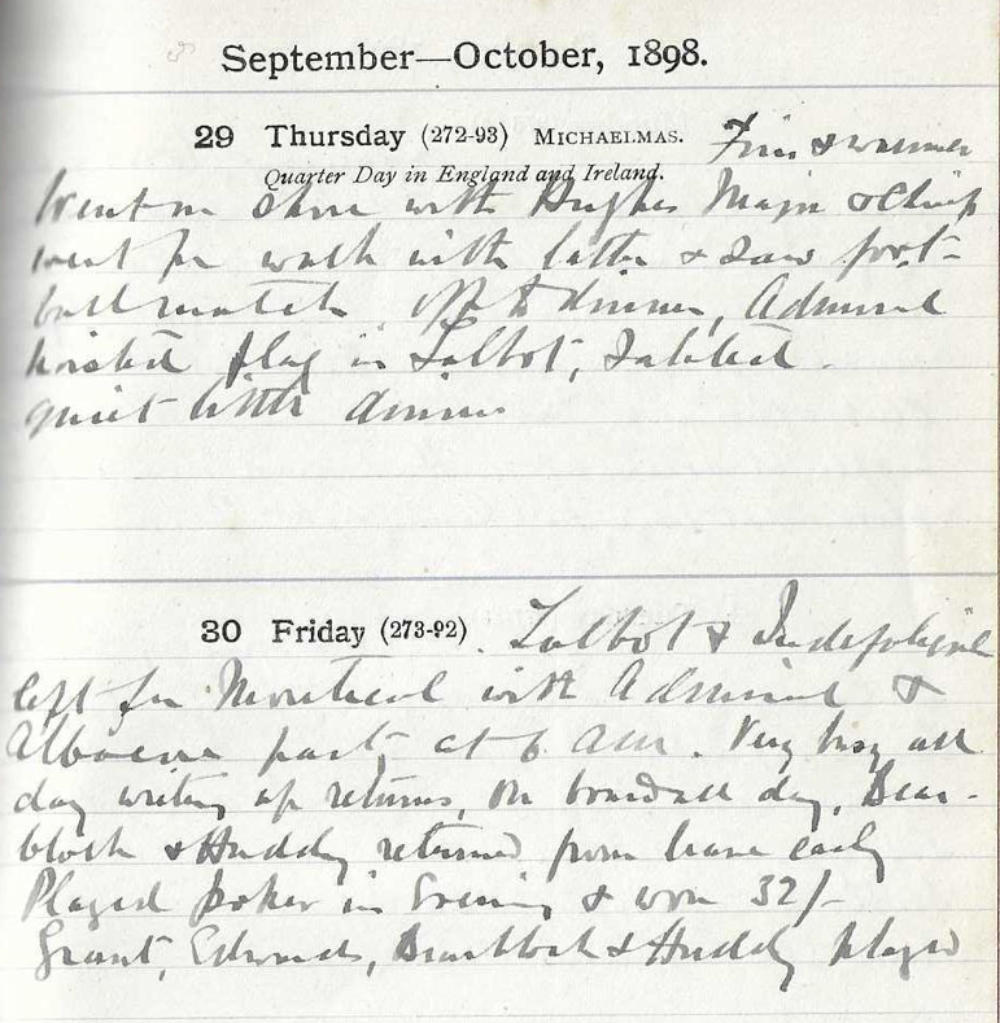 September—October, 1898.
29 Thursday (272-93) MICHAELMAS. Fine & warmer
Quarter Day in England and Ireland.
Went on shore with Hughes Major & Chief
went for walk with latter & saw foot-
ball match. Off to dinner, Admiral
hoisted flag in Talbot, saluted.
quiet little dinner
30 Friday (273-92). Talbot & Indefatigable
left for Montreal with Admiral &
party at 6 am. Very busy all
day writing up returns, on board all day, Bear-
block & Huddy returned from leave early
Played poker in Evening & won 32/-
Grant, Edwards, Bearblock & Huddy played